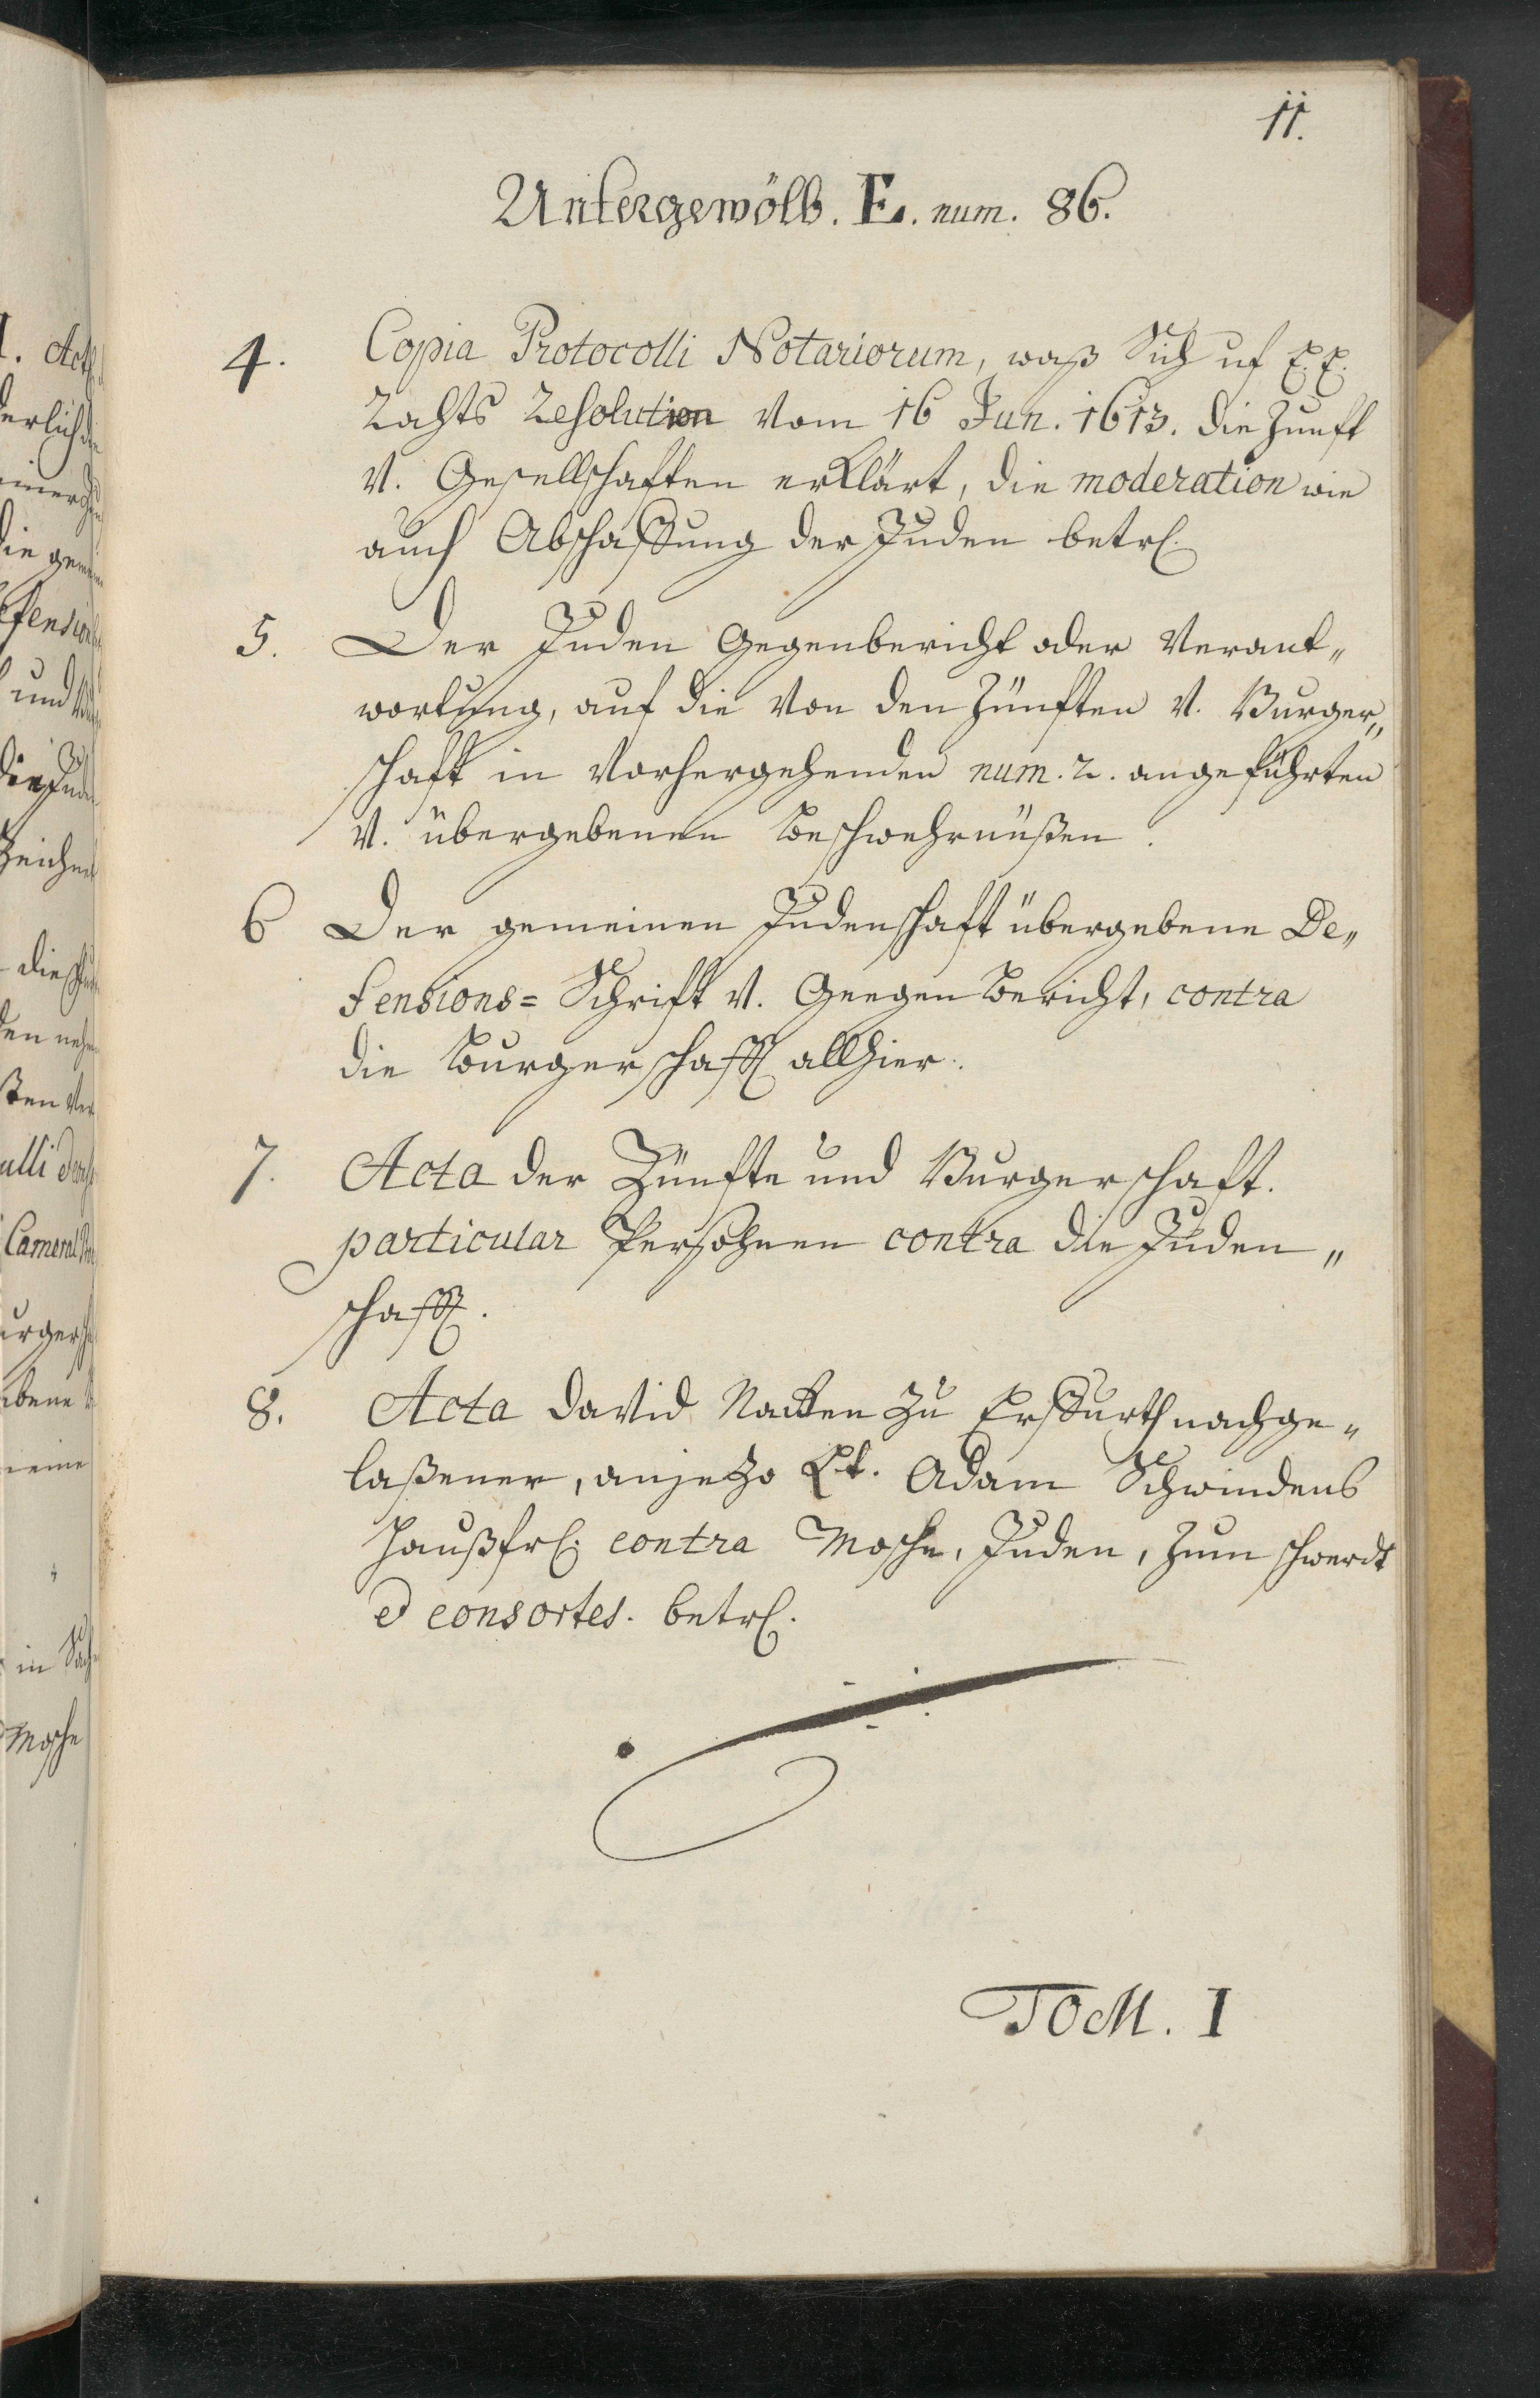 11.
Untergewölb. E. num. 86.
4. Copia Protocolli Notariorum, waß Sich uf E. E.
Rahts Resolution vom 16 Jun. 1613. die Zunfft
V. Gesellschafften erklärt, die moderation wie
auch Abschaffung der Juden betrl.
5. Der Juden Gegenbericht oder Verant„
wortung, auf die von den Zünfften V. Burger„
schafft in vorhergehenden num. 2. angeführten
V. übergebenen Beschwehrnüßen.
6 Der gemeinen Judenschafft übergebene De„
fensions= Schrifft V. Geegen Bericht, contra
die Burgerschafft allhier.
7. Acta der Zünffte und Burgerschafft.
particular Persohnen contra die Juden„
schafft.
8. Acta David zu Erffurth nachge„
laßener, anjetzo Lt. Adam Schwindens
Haußfrl. contra Mosche, Juden, Zum schwerdt
et consortes. betrl.
TOM. I